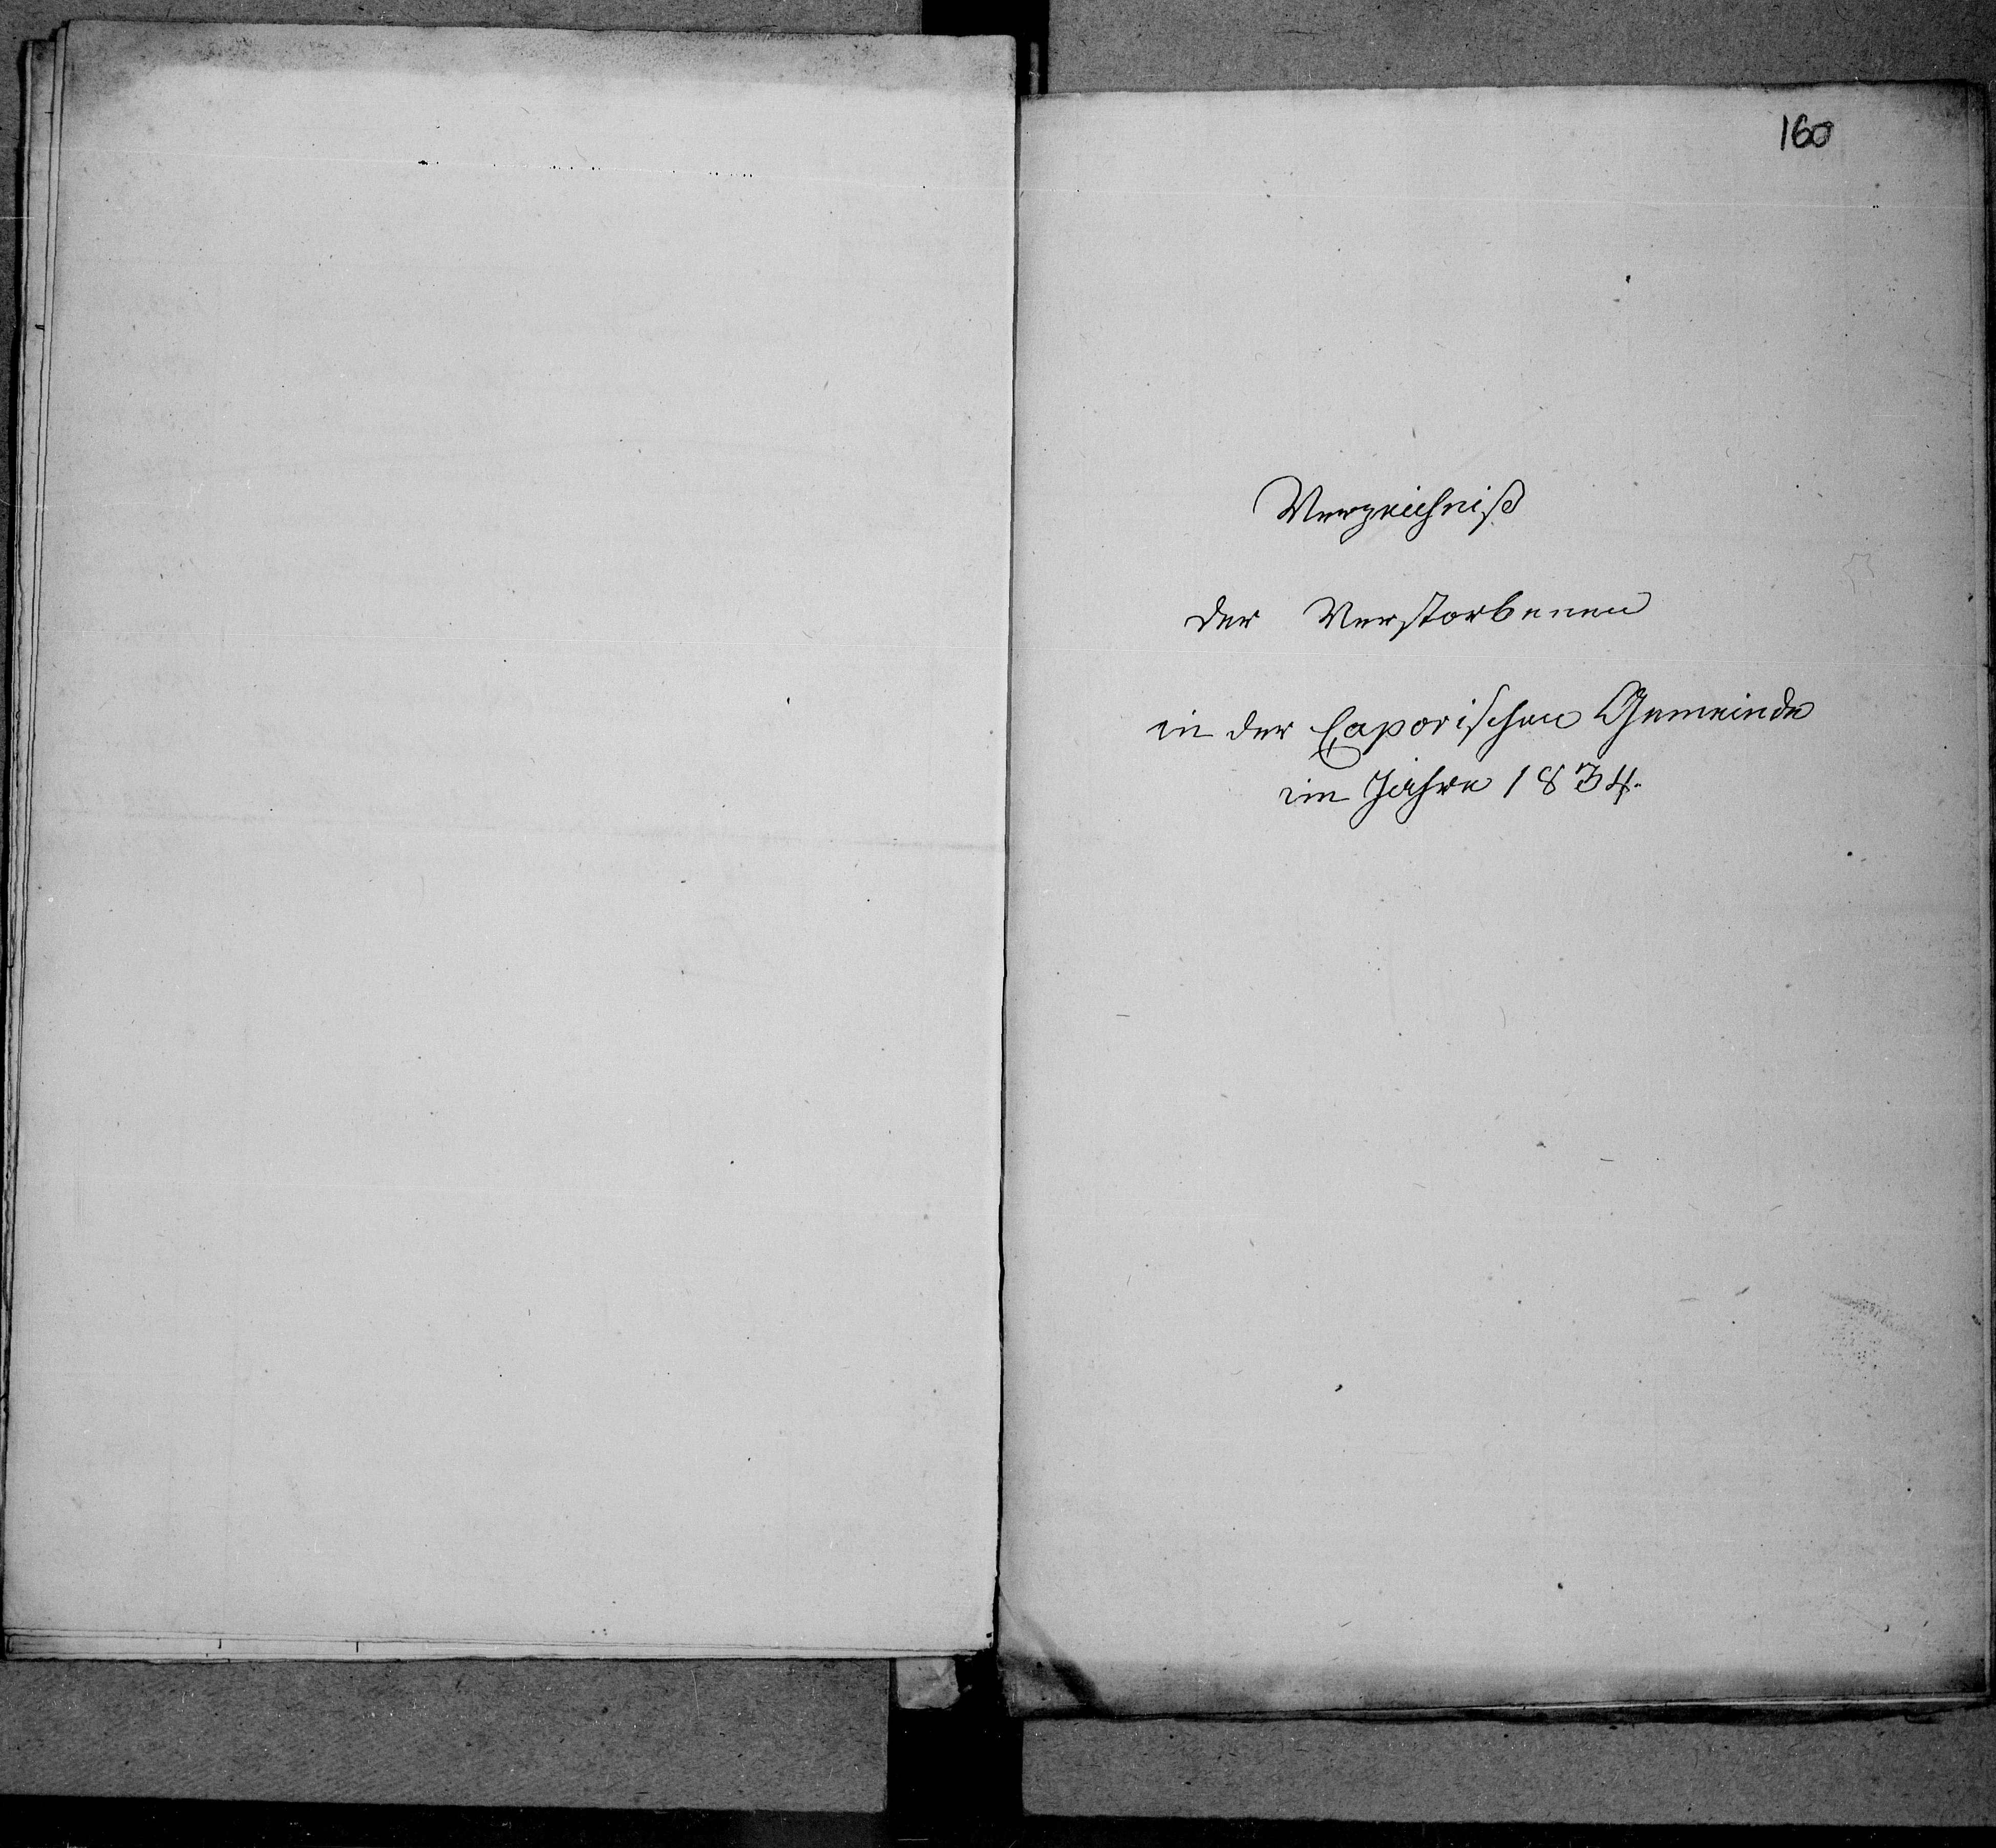 160
Verzeichniß
der Verstorbenen
in der Caporischen Gemeinde
im Jahre 1834.